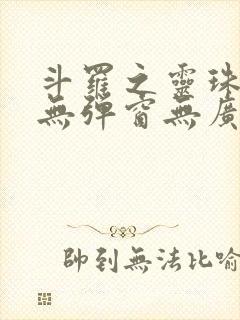 斗羅之靈珠
無彈窗無廣
帥到無法比喻